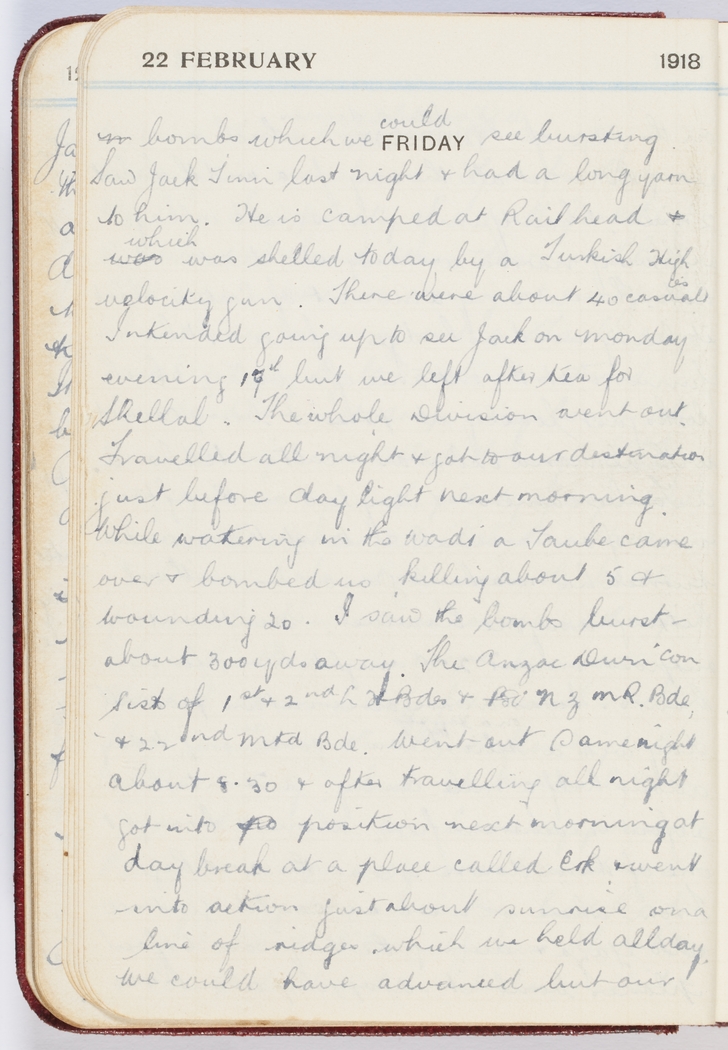 22 FEBRUARY 1918
could
FRIDAY
bombs which we see bursting
Saw Jack last night & had a long yarn
to him. He is camped at Rail head &
which
was was shelled today by a Turkish High
velocity gun. There were about 40 casualties
Intended going up to see Jack on Monday
evening but we left after tea for
Shellal. The whole Division went out.
Travelled all night & got to our destination
just before day light next morning.
While watering in the wadi a Taube came
over & bombed us killing about 5 &
wounding 20. I saw the bombs burst
about 300 yds away. The Anzac con
sist of 1st & 2nd L H Bdes & N Z M R. Bde,
& 22nd Mtd Bde. Went out Same night
about 8.30 & after travelling all night
got into position next morning at
day break at a place called & went
into action just about sunrise on a
line of ridges which we held all day.
We could have advanced but our